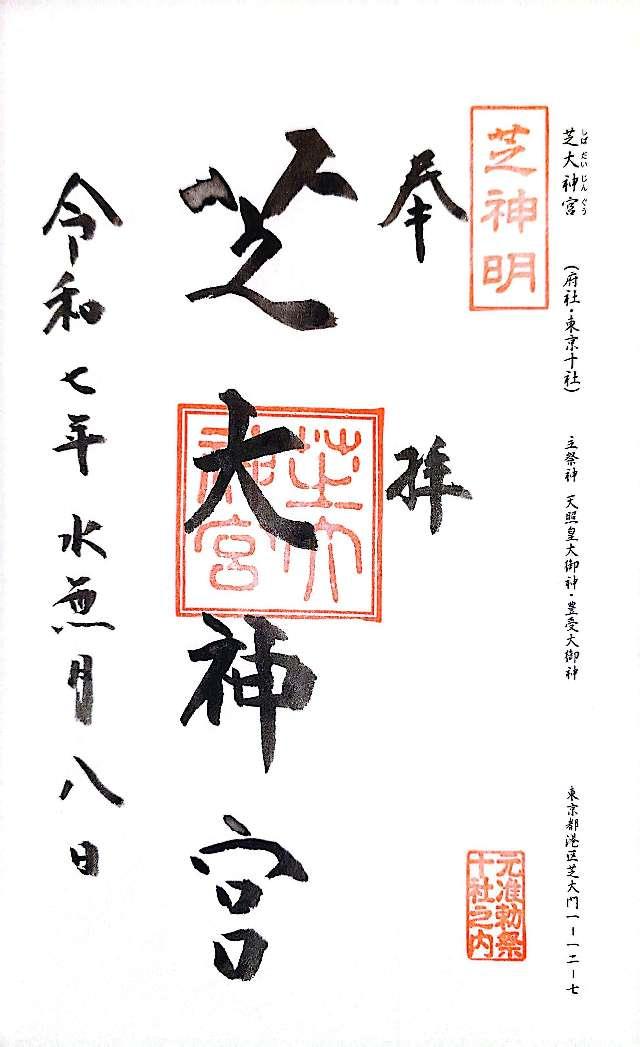 芝大神宮 (府社・東京十社) 主祭神 天照皇大御神・豊受大御神 東京都港区芝大門一ー一二ー七
しばだいじんぐう
芝神明
元准勅祭
十社之内
奉拝
芝大神宮
芝大
神宮
令和七年水無月八日